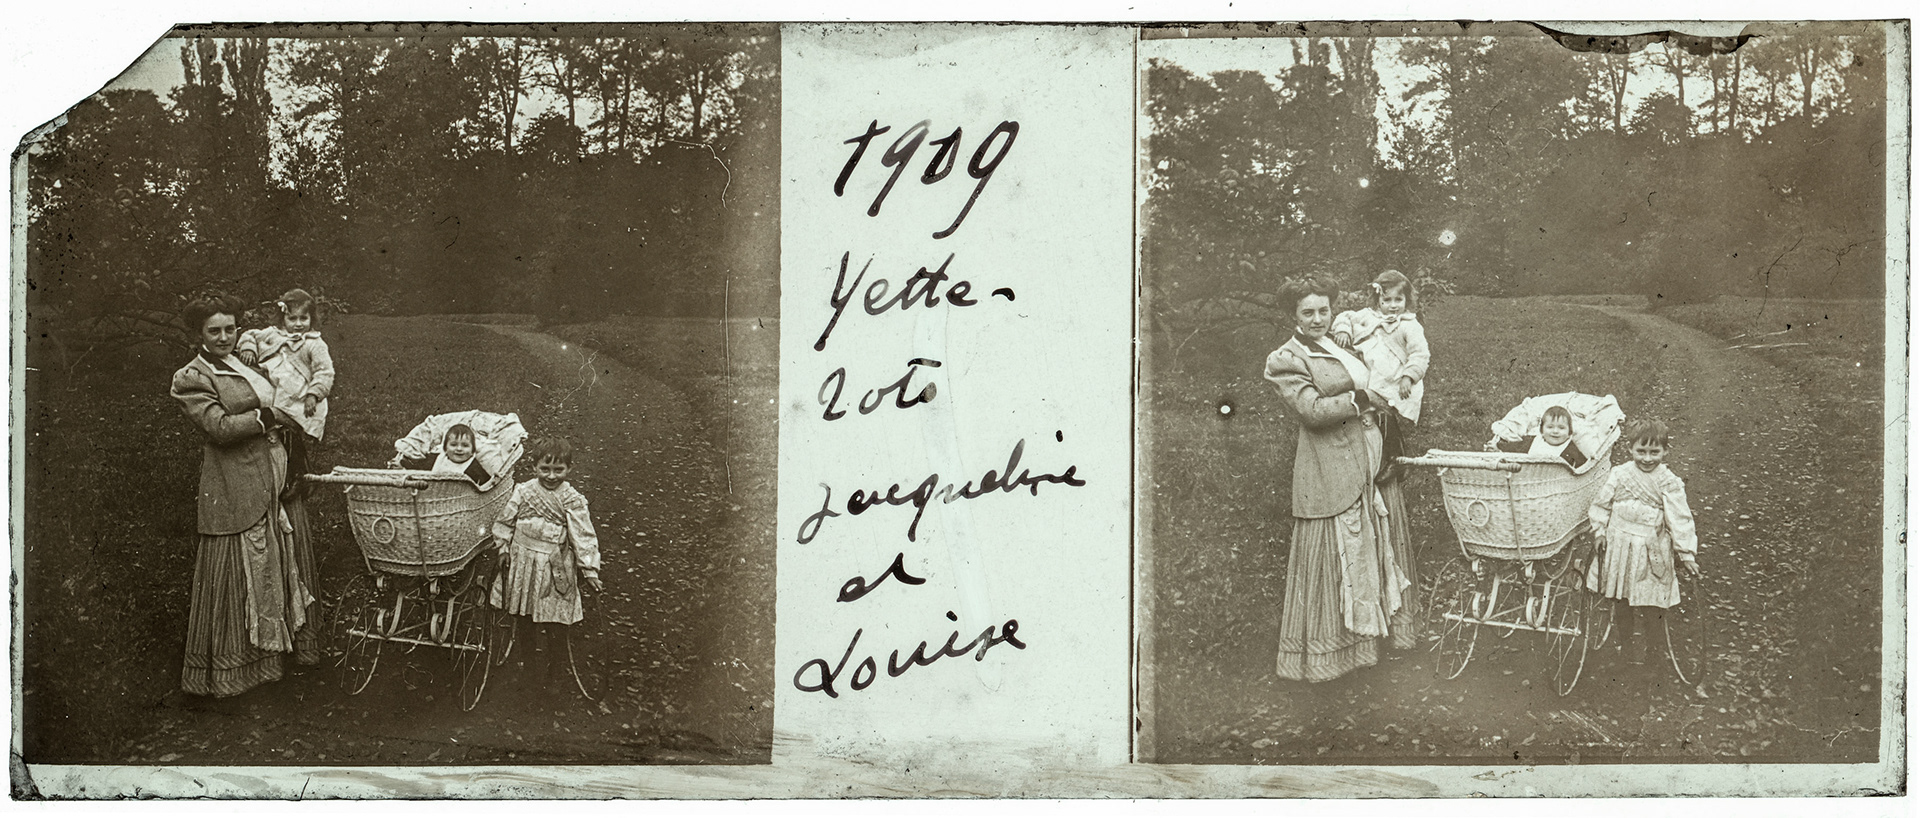 1909
Yette-
Loto
Jacqueline
et
Louise